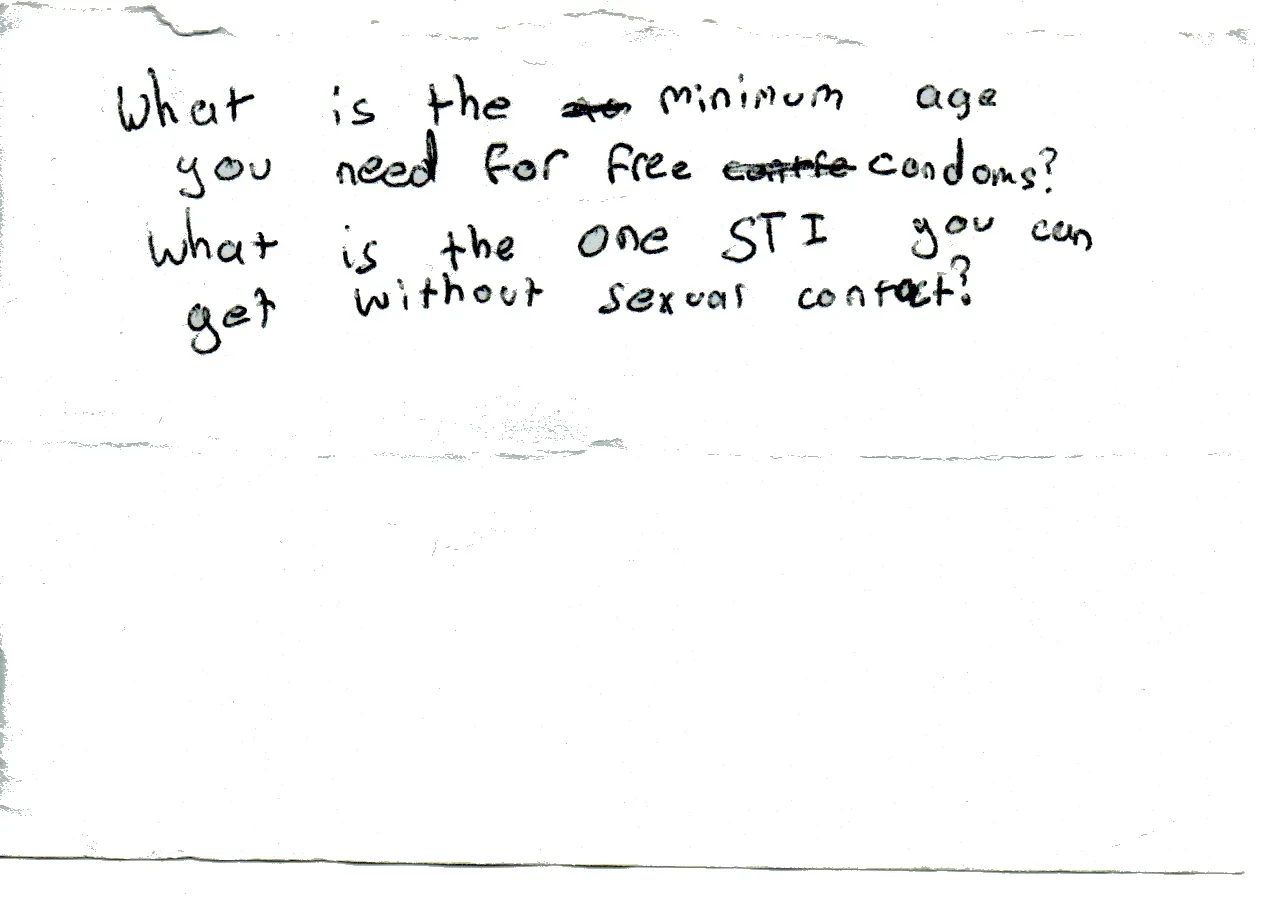 What is the minimum age
you need for free condoms?
What is the one STI you can
get without sexual contact?